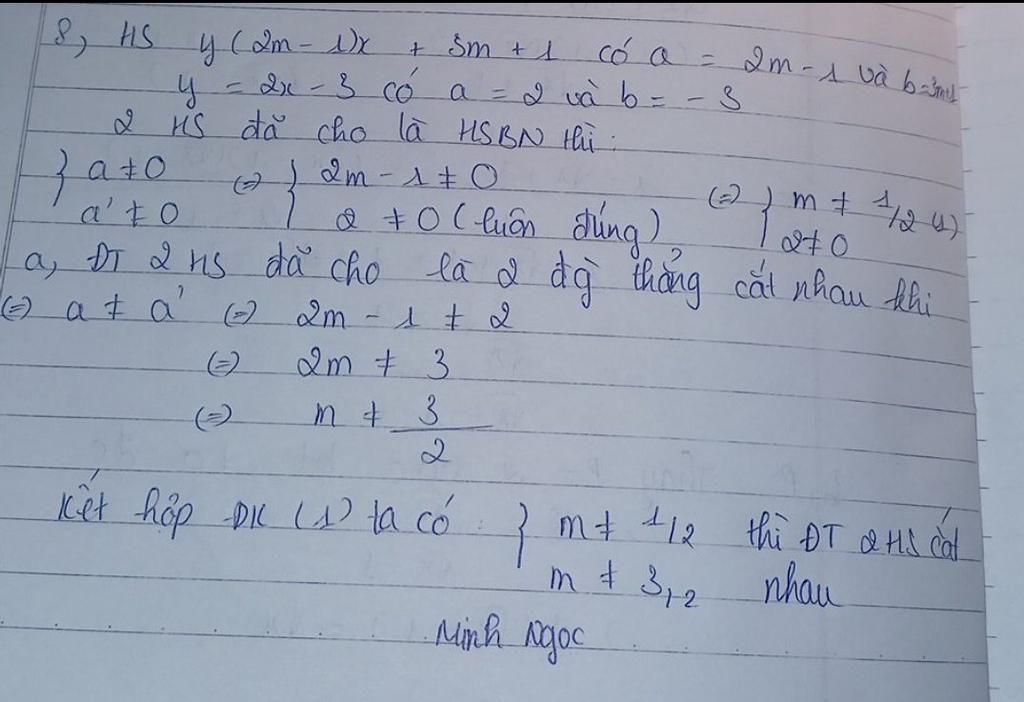 8, HS y (2m - 1)x + 3m + 1 có a = 2m - 1 và b = 3m+1
y = 2x - 3 có a = 2 và b = - 3
2 HS đã cho là HSBN thì :
} a ≠ 0 (=) } 2m - 1 ≠ 0 (=) } m ≠ 1/2 (1)
a' ≠ 0 2 ≠ 0 (luôn đúng) 2 ≠ 0
a, ĐT 2 HS đã cho là 2 đg thẳng cắt nhau khi
(=) a ≠ a' (=) 2m - 1 ≠ 2
(=) 2m ≠ 3
(=) m ≠ 3/2
Kết hợp ĐK (1) ta có : } m ≠ 1/2 thì ĐT 2 HS cắt
m ≠ 3/2 nhau
Minh Ngọc